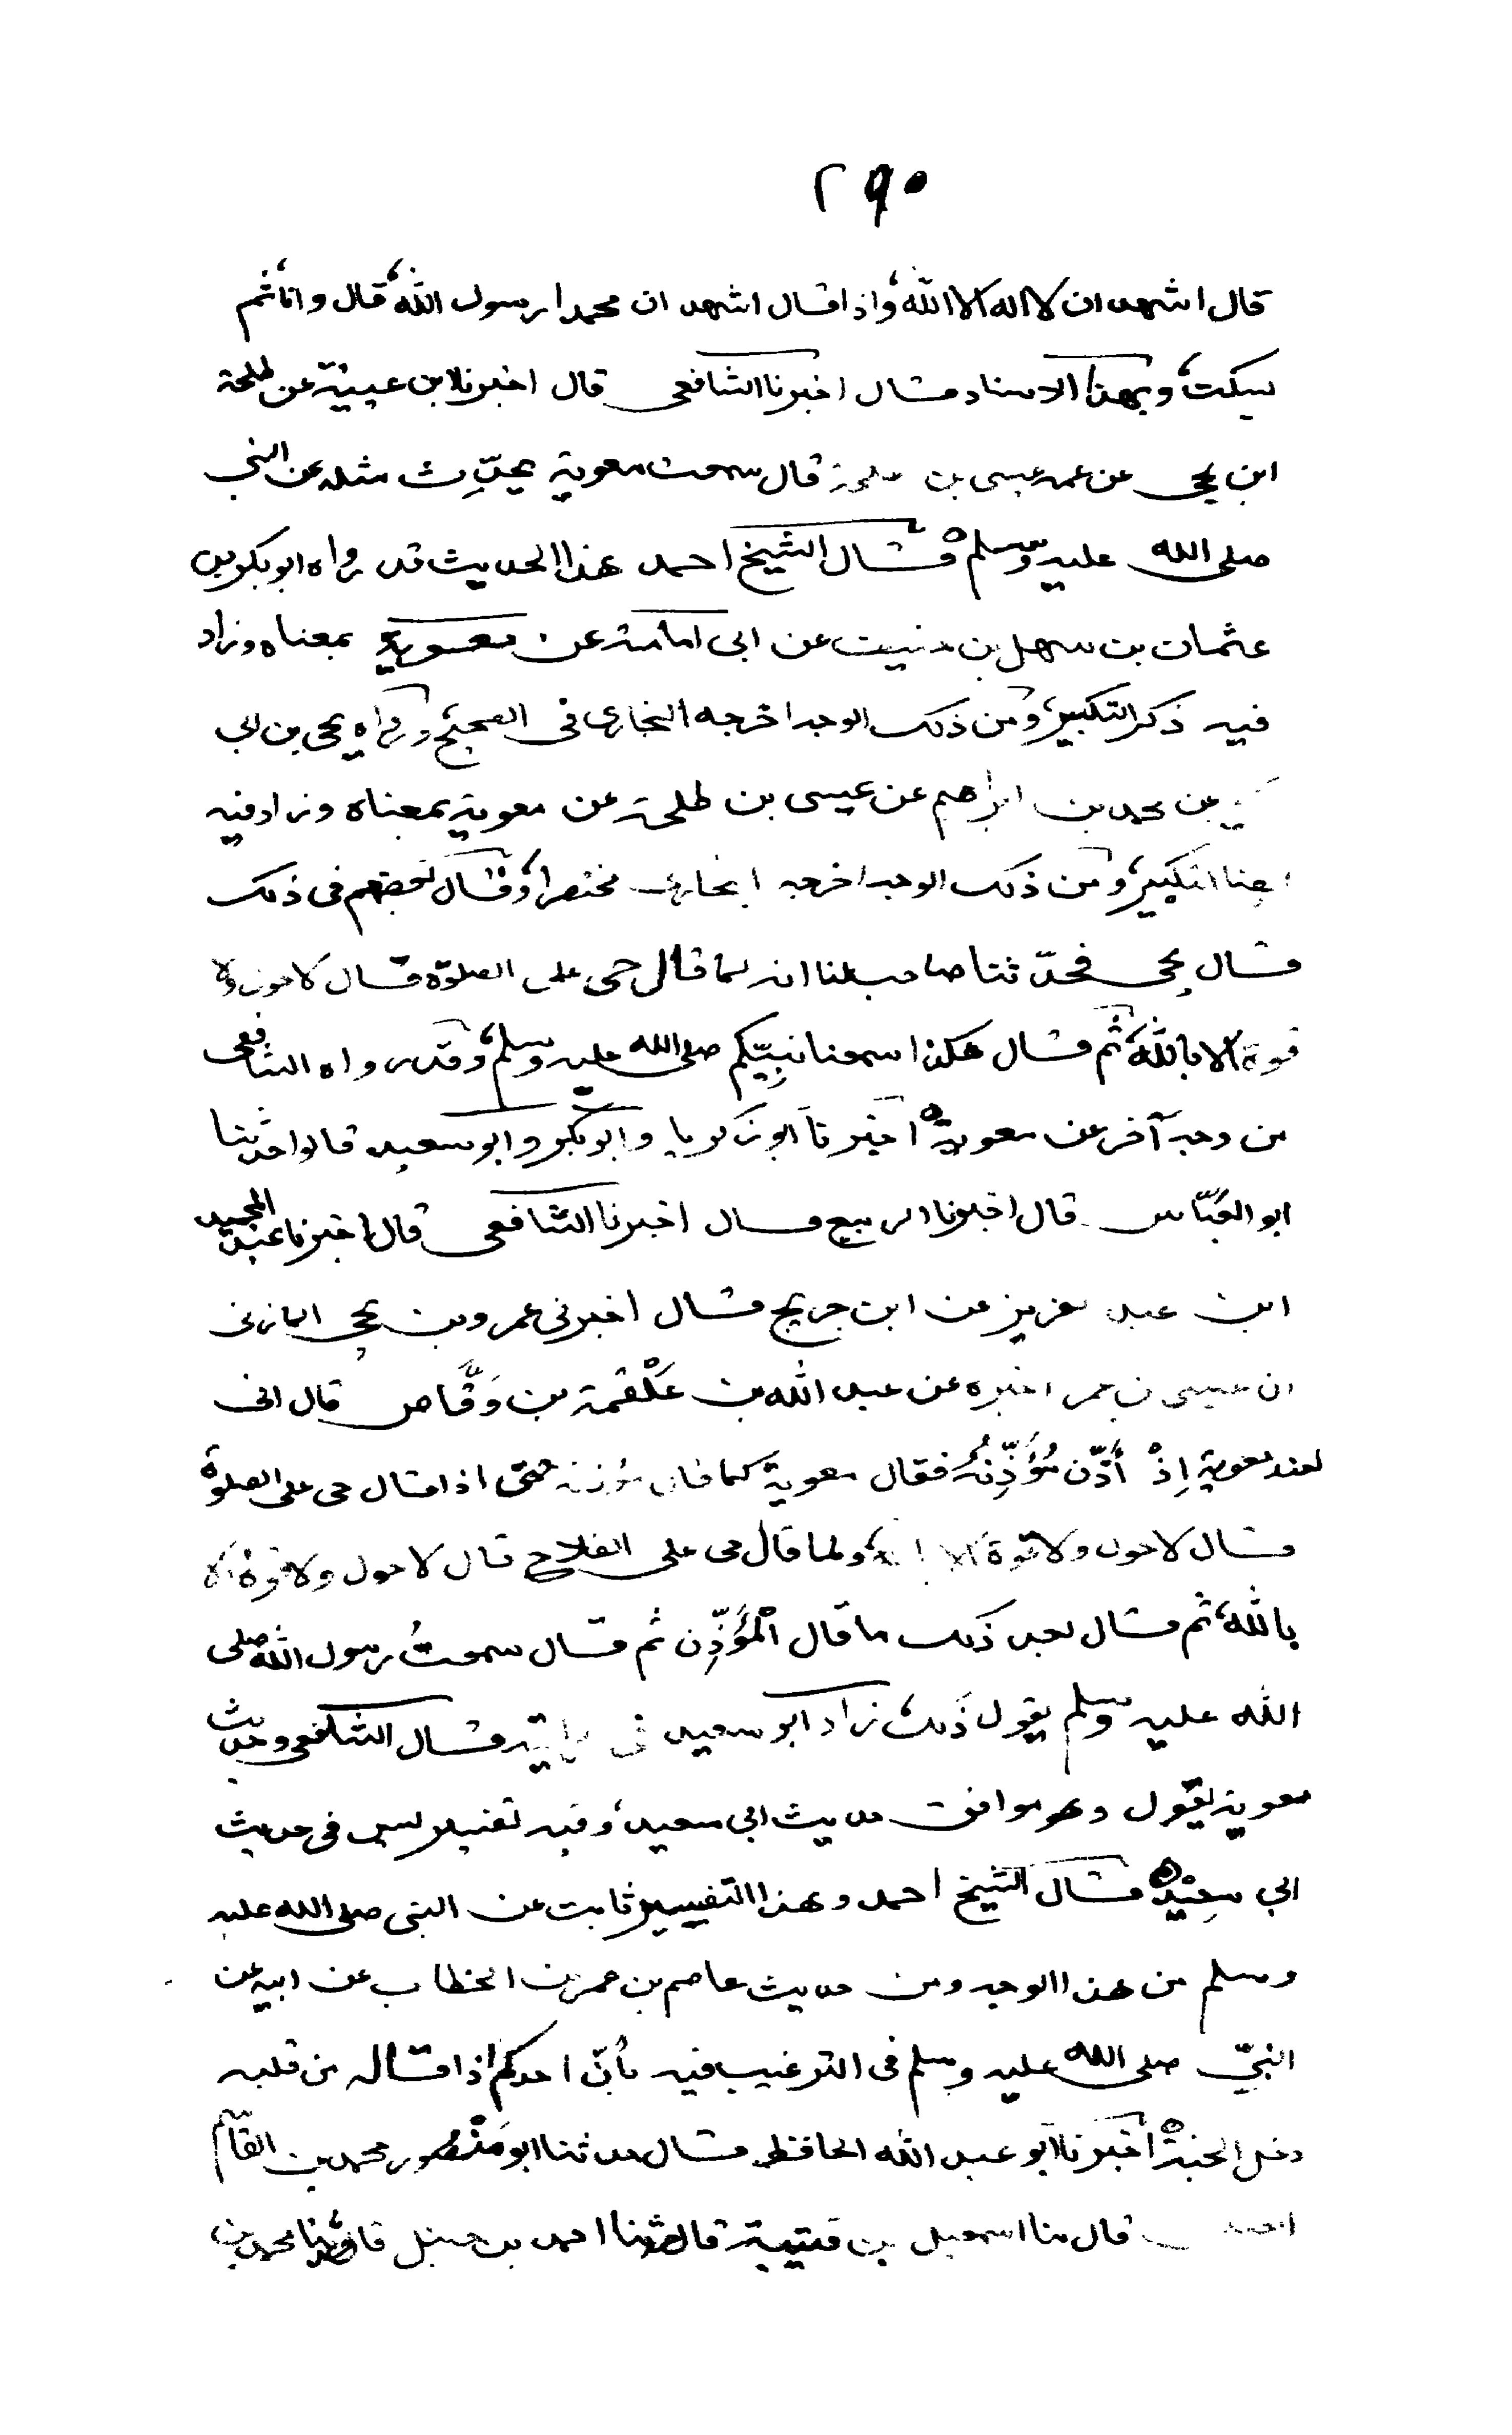 ٢٩٠
قال اشهد ان لا اله الا الله، واذا قال اشهد ان محمدا رسول الله، قال وانا ثم
سكت، وبهذا الاسناد قال اخبرنا الشافعي قال اخبرنا ابن عيينة عن طلحة
ابن يحيى عن عمه عيسى بن طلحة قال سمعت معوية يحدّث مثله عن النبي
صلى الله عليه وسلم قال الشيخ احمد هذا الحديث قد رواه ابو بكر بن
عثمان بن سهل بن حنيف عن ابى امامة عن معوية بمعناه وزاد
فيه ذكر التكبير، ومن ذلك الوجه اخرجه البخارى فى الصحيح ورواه يحيى بن ابي
كثير عن محمد بن ابراهيم عن عيسى بن طلحة عن معوية بمعناه وزاد فيه
ايضا التكبير، ومن ذلك الوجه اخرجه البخارى مختصرا، وقال بعضهم فى ذلك
قال يحيى فحدّثنا صاحب لنا انه لما قال حى على الصلوة قال لا حول ولا
قوة الا بالله، ثم قال هكذا سمعنا نبيّكم صلى الله عليه وسلم، وقد رواه الشافعى
من وجه آخر عن معوية اخبرنا ابو زكريا وابو بكر وابو سعيد قالوا حدثنا
ابو العبّاس قال اخبرنا الربيع قال اخبرنا الشافعى قال اخبرنا عبد المجيد
ابن عبد لعزيز عن ابن جريج قال اخبرنى عمرو بن يحيى المازنى
ان عيسى بن عمر اخبره عن عبد الله بن عَلْقمة بن وَقَّاص قال انى
لعند معوية اِذْ أذّن مُؤَذِّنُه فقال معوية كما قال مؤذنه حتى اذا قال حى على الصلوة
قال لا حول ولا قوة الا بالله، ولما قال حى على الفلاح قال لا حول ولا قوة الا
بالله، ثم قال بعد ذلك ما قال الْمُؤَذِّن ثم قال سمعتُ رسول الله صلى
الله عليه وسلم يقول ذلك، زاد ابو سعيد فى روايته قال الشافعى وحديث
معوية نقول وهو موافق حديث ابي سعيد، وفيه تفسير ليس فى حديث
ابي سعيد قال الشيخ احمد وهذا التفسير ثابت عن النبى صلى الله عليه
وسلم من هذا الوجه ومن حديث عاصم بن عمر بن الخطاب عن ابيه عن
النبيّ صلى الله عليه وسلم فى الترغيب فيه بأنّ احدكم اذا قاله من قلبه
دخل الجنة اخبرنا ابو عبد الله الحافظ قال حدثنا ابو مَنْصور محمد بن القاسم
قال ثنا اسمعيل بن قتيبة قال حدثنا احمد بن حنبل قال حدثنا محمد بن